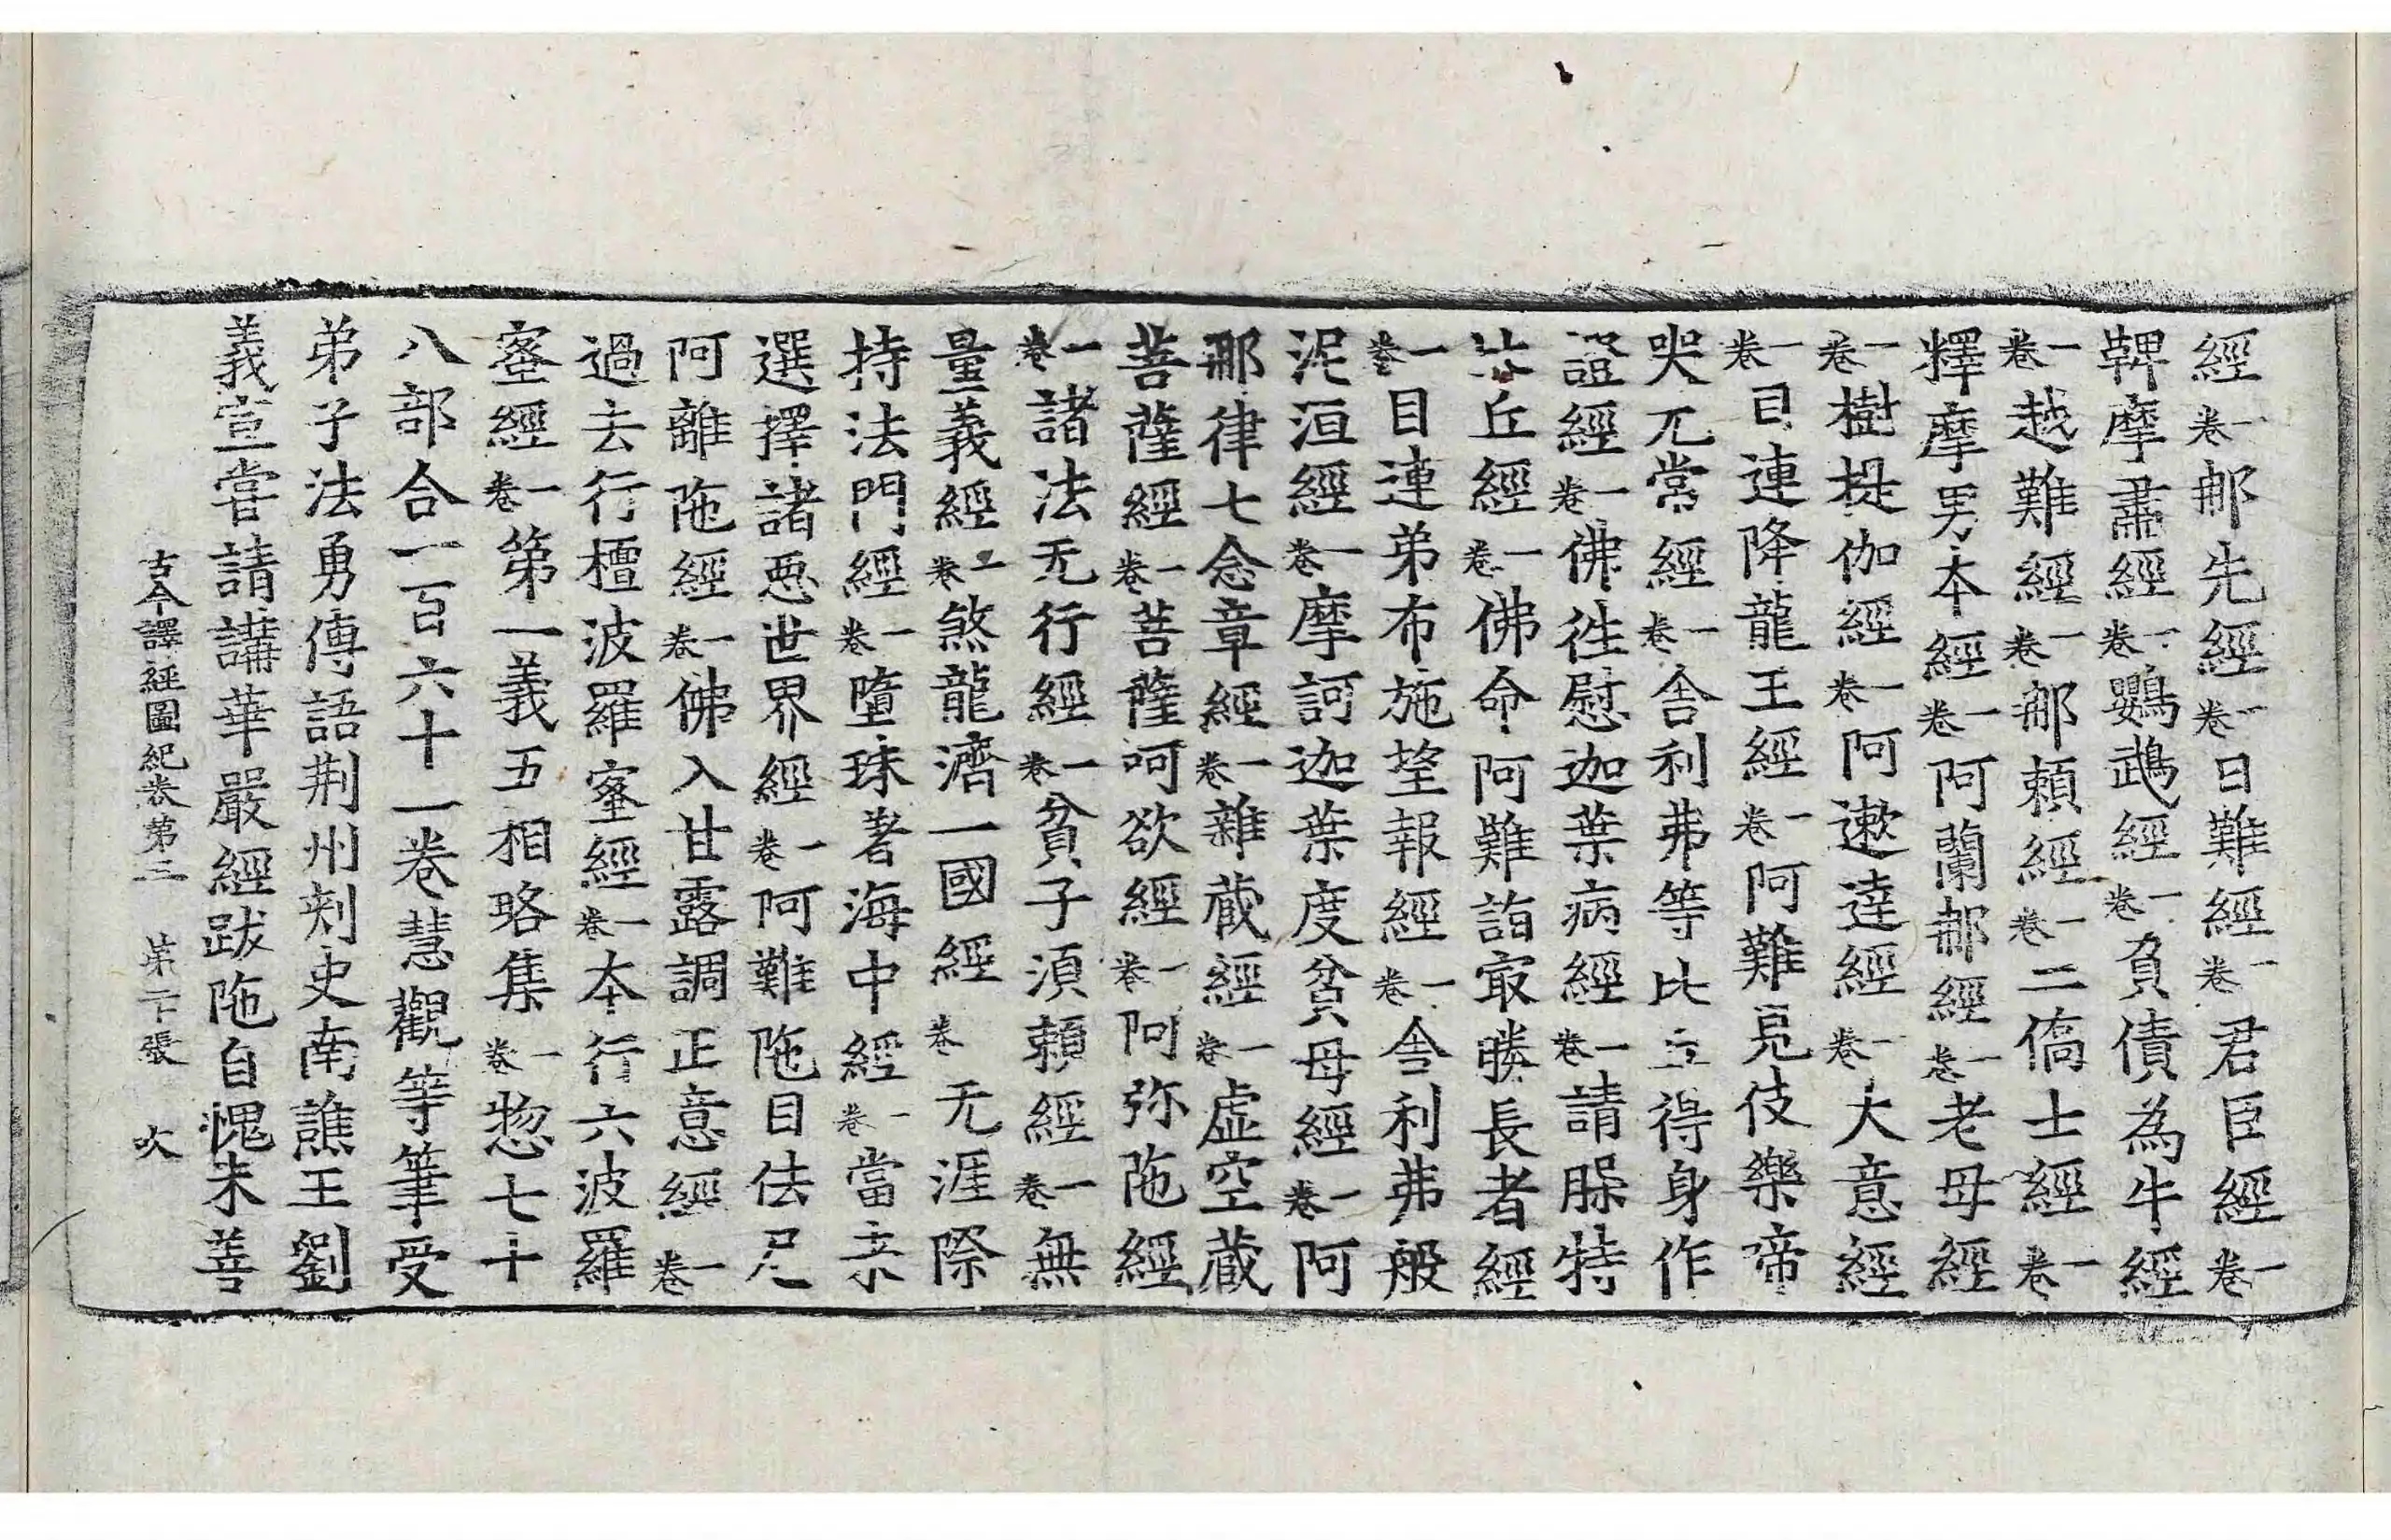 經一卷那先經一卷日難經一卷君臣經一卷
鞞摩肅經一卷鸚鵡經一卷負債為牛經
一卷越難經一卷那賴經一卷二僑士經一卷
釋摩男本經一卷阿蘭那經一卷老母經
一卷樹提伽經一卷阿遬達經一卷大意經
一卷目連降龍王經一卷阿難見伎樂帝
哭无常經一卷舍利弗等比丘得身作
證經一卷佛往慰迦葉病經一卷請腂特
比丘經一卷佛命阿難詣㝡勝長者經
一卷目連弟布施望報經一卷舍利弗般
泥洹經一卷摩訶迦葉度貧母經一卷阿
那律七念章經一卷雜蔵經一卷虛空蔵
菩薩經一卷菩薩呵欲經一卷阿弥陁經
一卷諸法无行經一卷貧子湏賴經一卷無
量義經一卷煞龍濟一國經卷无涯際
持法門經一卷墮珠著海中經一卷當来
選擇諸惡世界經一卷阿難陁目佉尼
阿離陁經一卷佛入甘露調正意經一卷
過去行檀波羅蜜經一卷本行六波羅
蜜經一卷第一義五相略集一卷惣七十
八部合一百六十一卷慧觀等筆受
弟子法勇傳語荆州刾史南譙王劉
義宣甞請講華嚴經跋陁自愧未善
古今譯經圖紀卷第三 第二十張 火